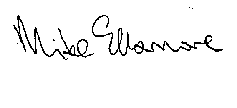 Mike Ellamore